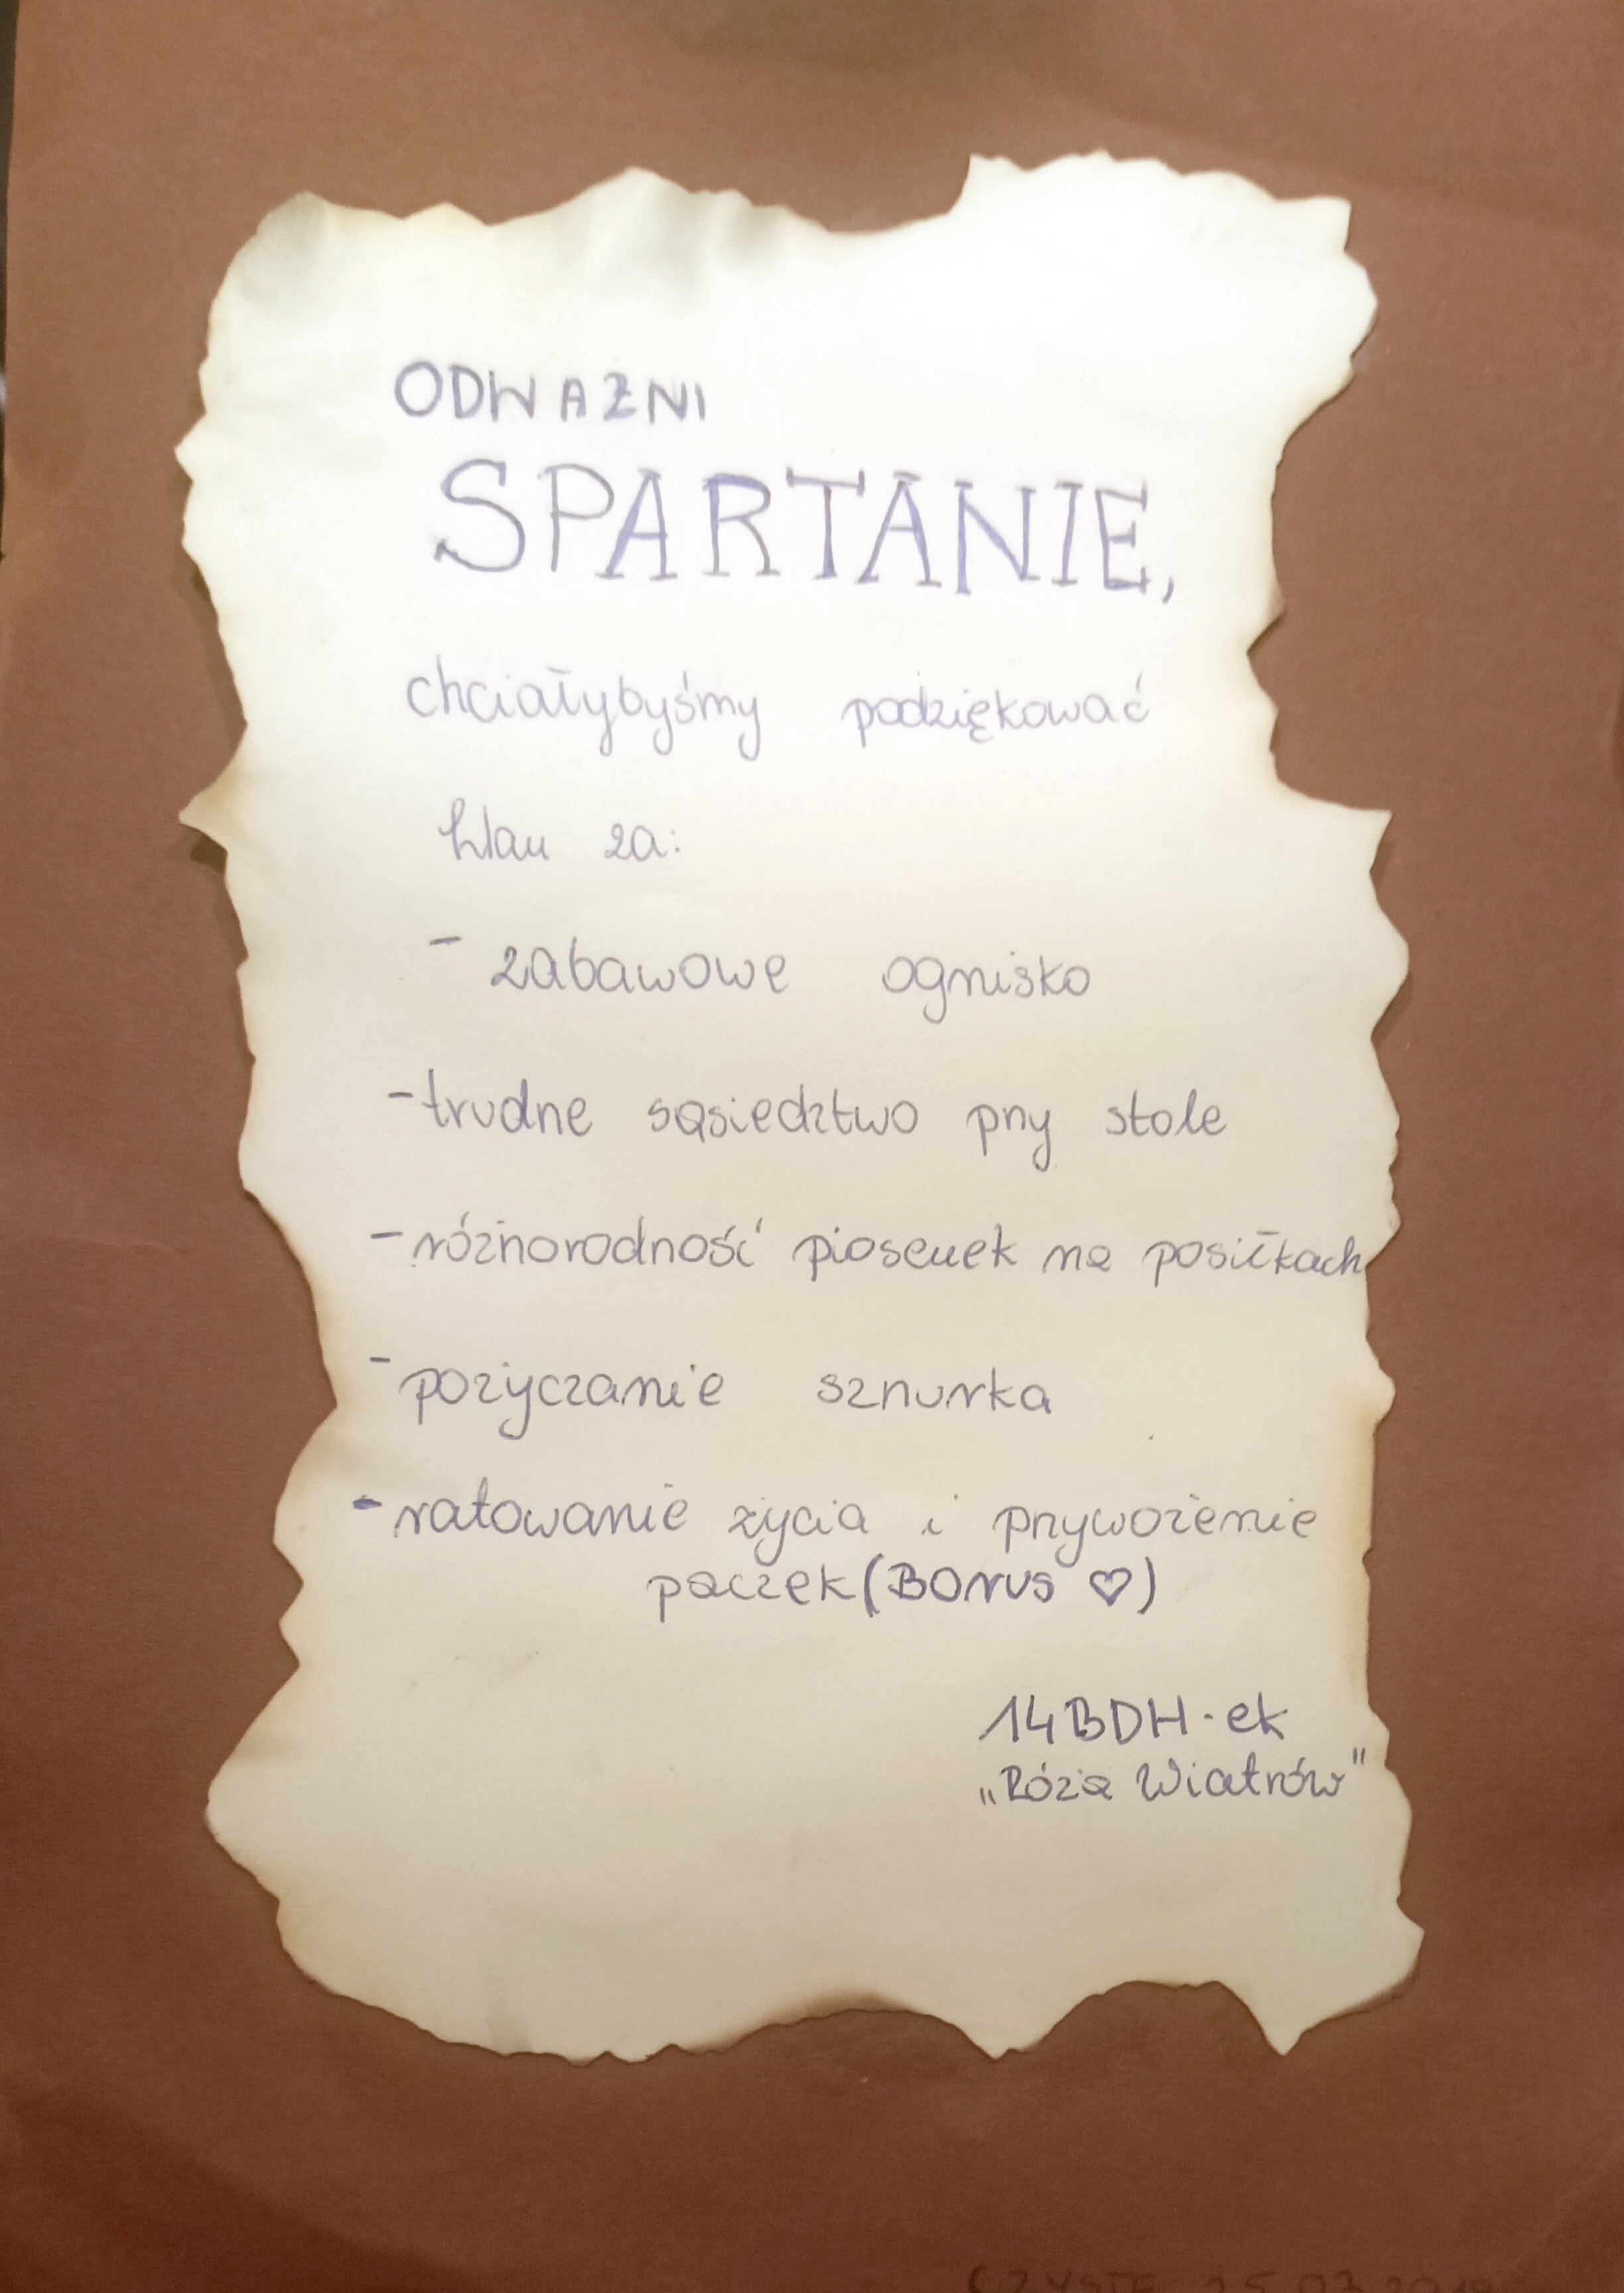 ODWAŻNI
SPARTANIE,
chciałybyśmy podziękować
Wam za:
- zabawowe ognisko
- trudne sąsiedztwo przy stole
- różnorodność piosenek na posiłkach
- pożyczanie sznurka
- ratowanie życia i przywożenie
paczek (Borus ♡)
14BDH-ek
„Róża Wiatrów"
CZYSTE 25.07.20